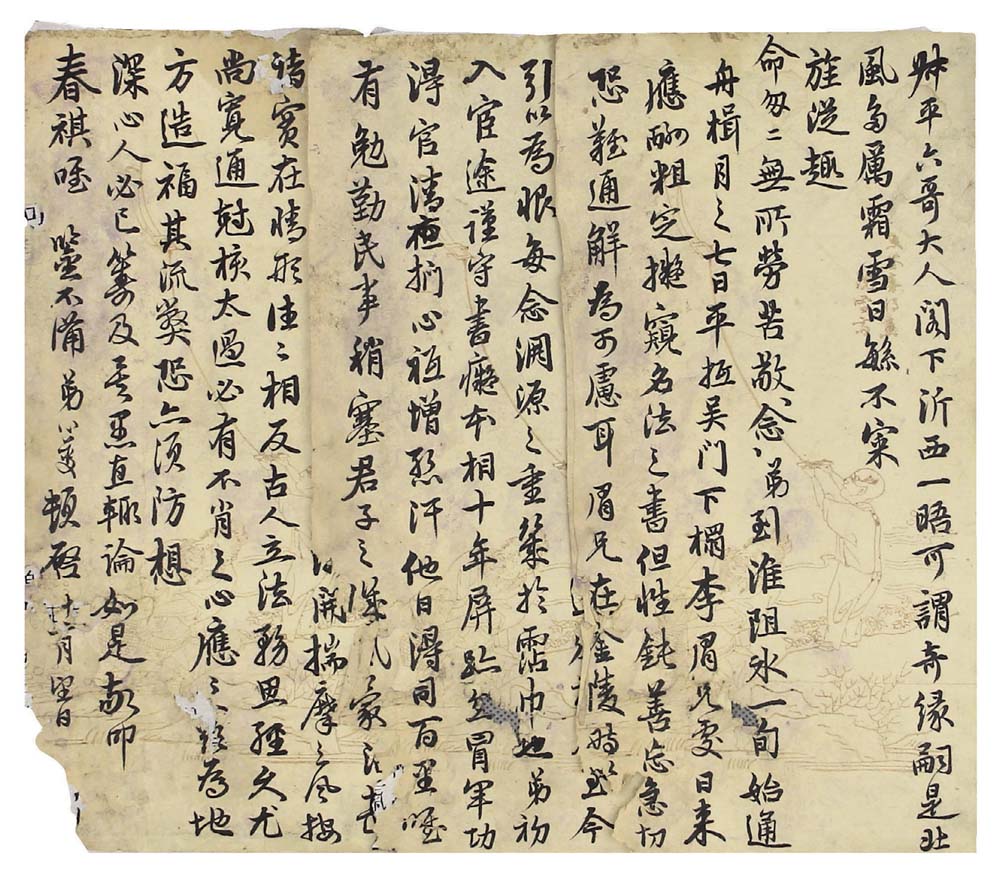 叔平六哥大人阁下沂西一晤可謂奇緣嗣是北
風多厲霜雪日緐不寀
旌從趣
命匆二無所勞苦敬念念弟到淮阻氷一旬始通
舟楫月之七日平抵吴門下榻李眉兄處日来
應酬粗定擬窺名法之書但性鈍善忘急切
恐難通解為可慮耳眉兄在金陵時
引以為恨每念淵源之重幾於霑巾也弟初
入宦途謹守書癡本相十年屏跡並冒軍功
得官清夜捫心祗增愁汗他日得同百里唯
有勉勤民事稍塞君子之
開揣摩之風按
諸實在情形往二相反古人立法務思經久尤
尚寬通尅核太過必有不肖之心應之為地
方造福其流獘恐亦須防想
深心人必已籌及吾
直輙論如是敬叩
春祺唯 鑒不備 弟 頓啓 十二月